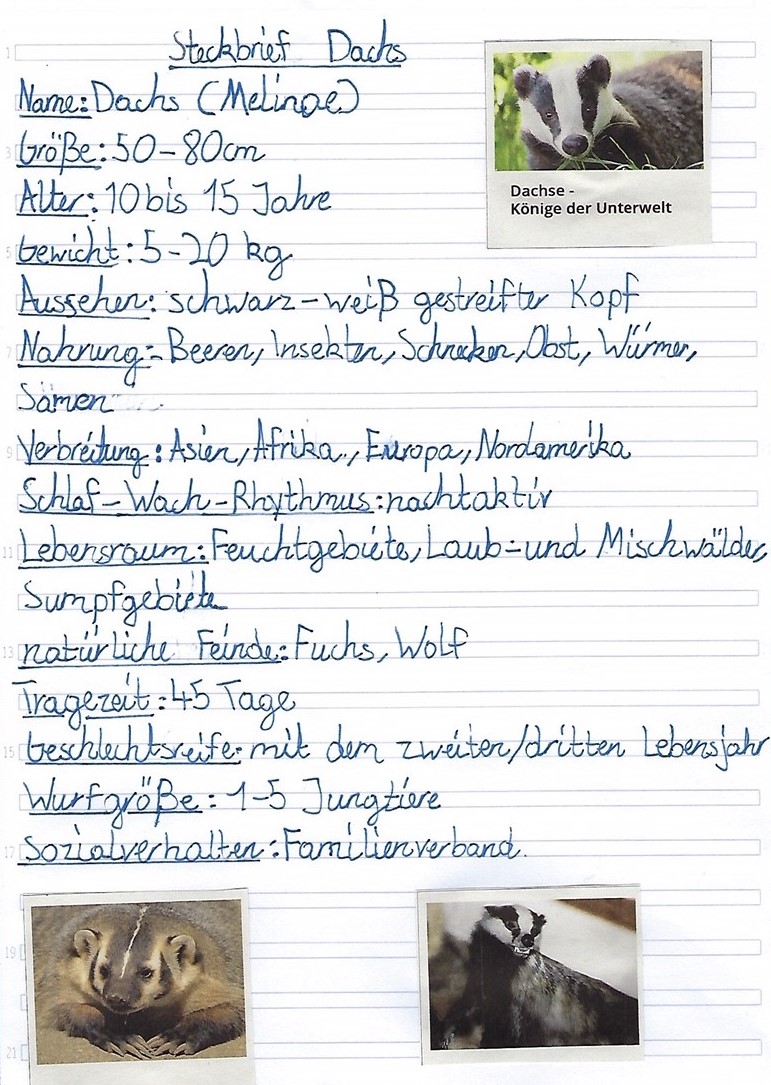 Steckbrief Dachs
Name: Dachs (Melinae)
Größe: 50-80cm
Dachse -
Könige der Unterwelt
Alter: 10 bis 15 Jahre
Gewicht: 5-20 kg
Aussehen: schwarz-weiß gestreifter Kopf
Nahrung: Beeren, Insekten, Schnecken, Obst, Würmer,
Samen
Verbreitung: Asien, Afrika, Europa, Nordamerika
Schlaf-Wach-Rhythmus: nachtaktiv
Lebensraum: Feuchtgebiete, Laub- und Mischwälder,
Sumpfgebiete
natürliche Feinde: Fuchs, Wolf
Tragezeit: 45 Tage
Geschlechtsreife: mit dem zweiten/dritten Lebensjahr
Wurfgröße: 1-5 Jungtiere
Sozialverhalten: Familienverband.